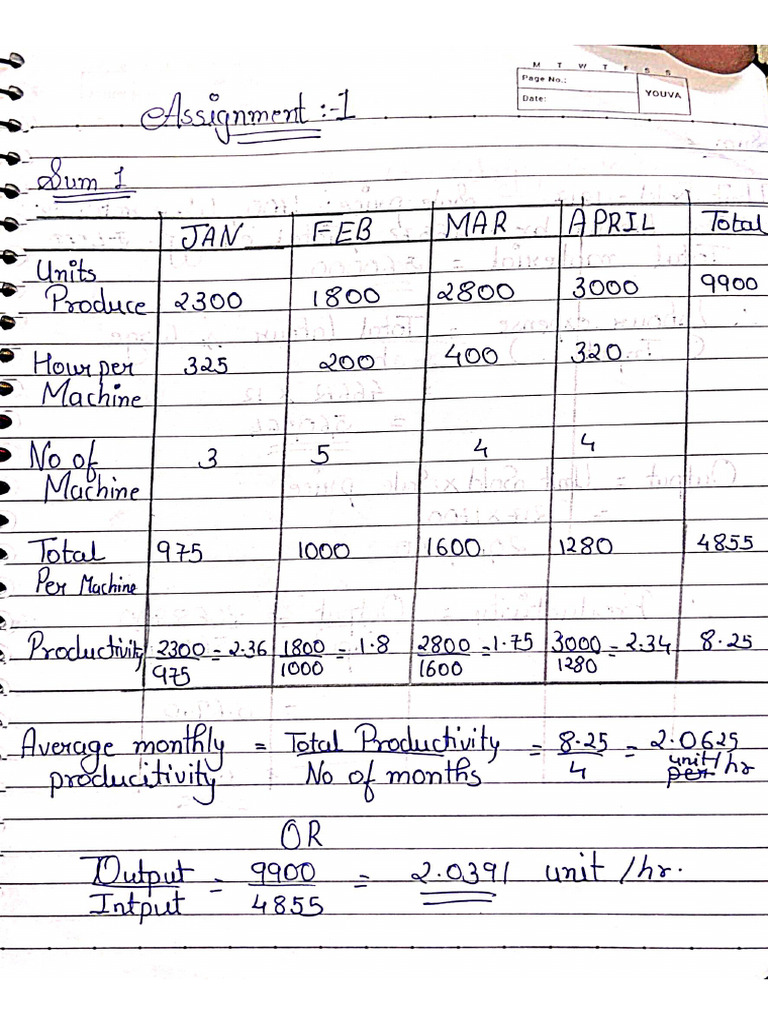 M T W T F S S
Page No.:
Date:
YOUVA
Assignment :-1
Sum 1
JAN FEB MAR APRIL Total
Units
Produce 2300 1800 2800 3000 9900
Hour per 325 200 400 320
Machine
No of 3 5 4 4
Machine
Total 975 1000 1600 1280 4855
Per Machine
Productivity 2300/975 = 2.36 1800/1000 = 1.8 2800/1600 = 1.75 3000/1280 = 2.34 8.25
Average monthly producitivity = Total Productivity/No of months = 8.25/4 = 2.0625 unit/hr
OR
Output/Intput = 9900/4855 = 2.0391 unit /hr.